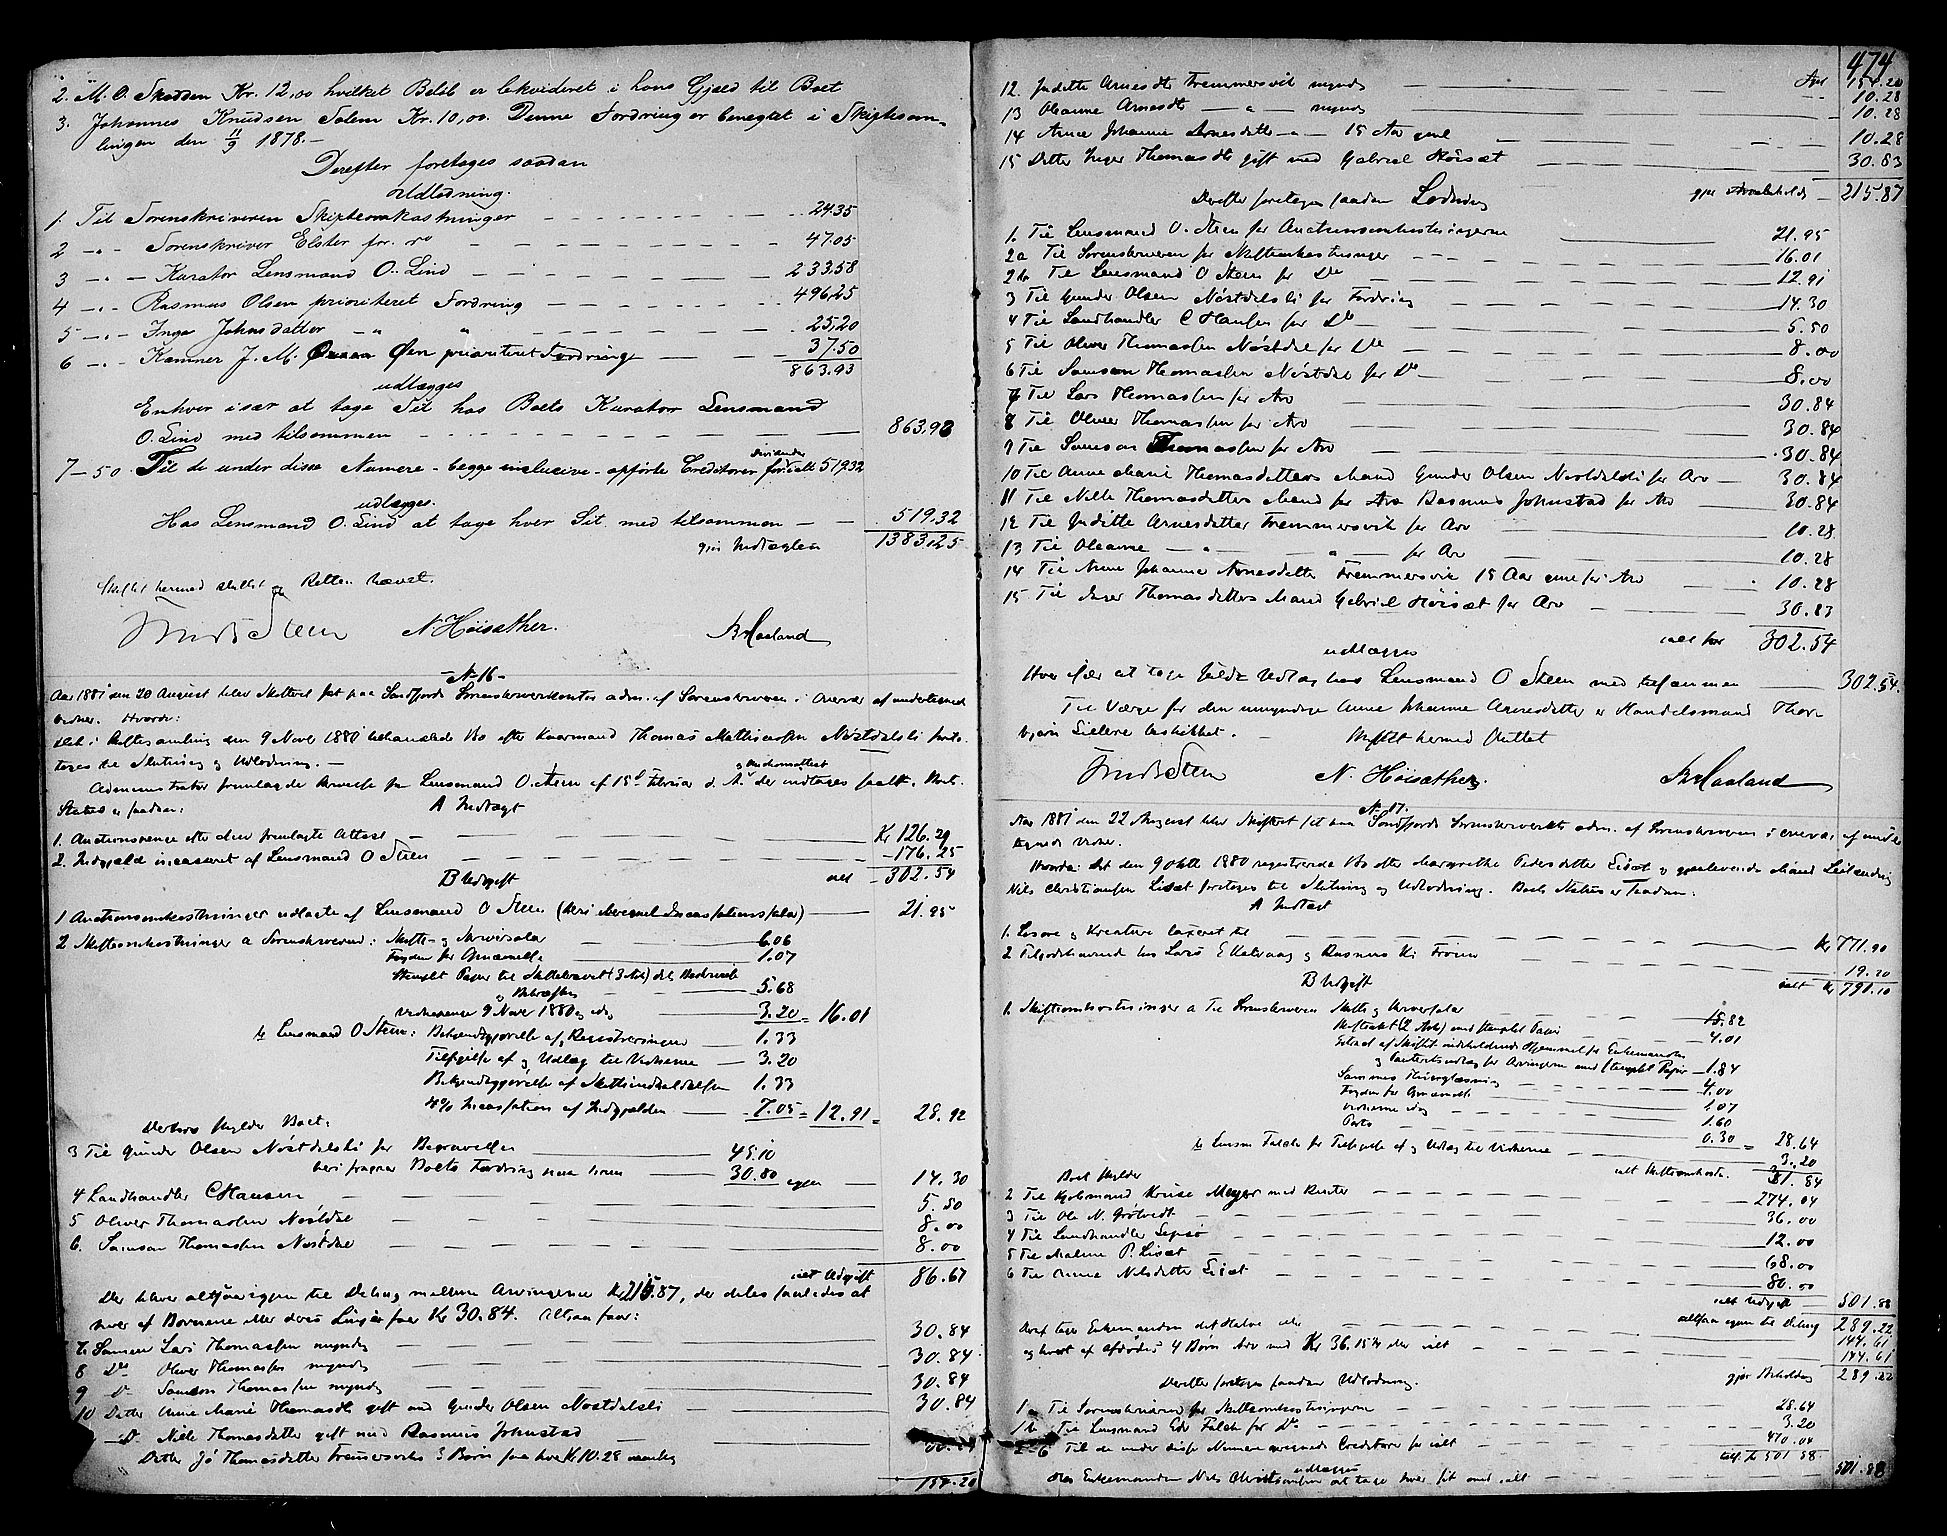 2. M. O. Skodden Kr. 12,00 hvilket Beløb er likvideret i hans Gjæld til Boet
3. Johannes Knudsen Solem Kr. 10,00. Denne Fordring er benegtet i Skiftesam-
lingen den 11/9 1878.-
Derefter foretoges saadan
Udlodning.
1. Til Sorenskriveren Skifteomkostninger 24.35
2 -"- Sorenskriver Elster for do 47.05
3 -"- Kurator Lensmand O. Lind 233.58
4 -"- Rasmus Olsen prioriteret Fordring 496,25
5 -"- Inga Johnsdatter " " 25,20
6 -"- Kæmner J. M. Øen prioriteret Fordring 37.50
863.93
udlægges
Enhver især at tage Sit hos Boets Kurator Lensmand
O. Lind med tilsammen 863,93
7-50 Til de under disse Numere - begge inclusive - opførte Creditorer dividende 519.32
udlægges.
Hos Lensmand O. Lind at tage hver Sit med tilsammen 519.32
gjør Indtægten 1383,25
Skiftet hermed sluttet og Retten hævet.
Steen N. Høisæther. Haaland
No 16
Aar 1881 den 20 August blev Skifteret sat paa Søndfjords Sorenskriverkontor adm. af Sorenskriveren i Overvær af undertegnede
Vidner. Hvorda:
det i Skiftesamling den 9 Novr 1880 behandlede Bo efter Kaarmand Thomas Mathiassen Nøstdalsli fore-
toges til Slutning og Udlodning. -
Administrator fremlagde Skrivelse fra Lensmand O. Steen af 15de Februar d. A. der indtages saalt. Boets
Status er saadan:
A Indtægt
1. Auctionspenge efter den fremlagte Attest Kr 126.29
2. Indgjæld incasseret af Lensmand O Steen 176.25
ialt 302.54
B Udgift
1 Auctionsomkostninger udlagte af Lensmand O Steen (heri beregnet Incassationssalær) 21.95
2 Skifteomkostninger a Sorenskriveren: Skifte- og Skriversalær 6.06
Fogden for Gjennemsyn 1.07
Stemplet Papir til Skiftebrevet (3 Ark) dets Beskrivelse
og Bekræftelse 5.68
Vidnepenge 9 Novr 1880 og idag 3.20 = 16.01
b Lensmand O Steen: Bekjendtgjørelse af Registreringen 1.33
Tilsigelse af og Udlæg til Vidnerne 3.20
Bekjendtgjørelse af Skifteindkaldelsen 1.33
4% Incassation af Indgjælden 7.05 = 12.91 = 28.92
Derhos skylder Boet:
3 Til Gunder Olsen Nøstdalsli for Begravelsen 45.10
heri fragaar Boets Fordring paa ham 30.80 igjen 14.30
4 Landhandler C Hansen 5.50
5 Oliver Thomassen Nøstdal 8.00
6. Samson Thomassen Nøstdal 8.00
ialt Udgift 86.67
Der bliver altsaa igjen til Deling mellem Arvingerne Kr 215.87, der deles saaledes at
hver af Børnene eller deres Linjer faar Kr 30.84. Altsaa faar:
7. Sønnen Lars Thomassen myndig 30.84
8 Do Oliver Thomassen myndig 30.84
9 Do Samson Thomassen myndig 30.84
10 Datter Anne Marie Thomasdtr gift med Gunder Olsen Nøstdalsli 30.84
Do Nille Thomasdatter gift med Rasmus Johnstad
Datter Thomasdatter Fremmersviks 3 Børn faar hver Kr 10.28 nemlig
154.20
474
12 Juditte Arnesdtr Fremmersvik myndig 154.20
10.28
13 Oleanne Arnesdtr -"- myndig 10.28
14 Anne Johanne Arnesdatter -"- 15 Aar gml 10.28
15 Datter Inger Thomasdtr gift med Gabriel Høisæt 30.83
gjør Arvebeholdg 215.87
Derefter foretoges saadan Lodning
1. Til Lensmand O. Steen for Auctionsomkostningerne 21.95
2a Til Sorenskriveren for Skifteomkostninger 16.01
2b Til Lensmand O Steen for Do 12.91
3 Til Gunder Olsen Nøstdalsli for Fordring 14.30
4 Til Landhandler C Hansen for Do 5.50
5 Til Oliver Thomassen Nøstdal for Do 8.00
6 Til Samson Thomassen Nøstdal for Do 8.00
7 Til Lars Thomassen for Arv 30.84
8 Til Oliver Thomassen for Arv 30.84
9 Til Samson Thomassen for Arv 30.84
10 Til Anne Marie Thomasdatters Mand Gunder Olsen Nøstdalsli for Arv 30.84
11 Til Nille Thomasdatters Mand Rasmus Johnstad for Arv 30.84
12 Til Juditte Arnesdatter Fremmersvik for Arv 10.28
13 Til Oleanne -"- -"- for Arv 10.28
14 Til Anne Johanne Arnesdatter Fremmersvik 15 Aar gml for Arv 10.28
15 Til Inger Thomasdatters Mand Gabriel Høisæt for Arv 30.83
ialt Kr 302.54
udlægges
Hver især at tage fuldt Udlæg hos Lensmand O Steen med tilsammen 302.54.
Til Værge for den umyndige Anne Johanne Arnesdatter er Handelsmand Thor-
bjørn beskikket. - Skiftet hermed sluttet
Steen N. Høisæther. Haaland
No 17.
Aar 1881 den 22 August blev Skifteret sat paa Søndfjords Sorenskriverkts adm. af Sorenskriveren i Overvær af under-
tegnede Vidner.
Hvorda: det den 9 Oktbr 1880 registrerede Bo efter Margrethe Pedersdatter Lisæt og gjenlevende Mand Leilænding
Nils Christiansen Lisæt foretoges til Slutning og Udlodning. Boets Status er saadan:
A Indtægt
1. Løsøre og Kreature taxeret til Kr 771.90
2 Tilgodehavende hos Lars 19.20
ialt Kr 791.10
B Udgift
1. Skifteomkostninger a Til Sorenskriveren Skifte og Skriversalær 15.82
Skifteakt (2 Ark) med stemplet Papir 4.01
Extract af Skiftet indeholdende Hjemmel for Enkemanden
og Panterets udlæg for Arvingerne med stemplet Papir 1.84
Sammes Thinglæsning 4.00
Fogden for Gjennemsyn 1.07
Vidnerne idag 1.60
Porto 0.30 = 28.64
b Lensm Falch for Tilsigelse af og Udlæg til Vidnerne 3.20
ialt Skifteomkostn. 31.84
Boet skylder
2 Til Kjøbmand Kruse Meyer med Renter 274.04
3 Til Ole N. Grøtvedt 36.00
4 Til Landhandler 12.00
5 Til Malene P. Lisæt 68.00
6 Til Anne Nilsdatter Lisæt 80.00
ialt Udgift 501.88
altsaa igjen til Deling 289.22
deraf tager Enkemanden det Halve eller 144.61
og hvert af Afdødes 4 Børn Arv med Kr 36.15¼ eller ialt 144.61
gjør Beholdning 289.22
Derefter foretoges saadan Udlodning.
1a Til Sorenskriveren for Skifteomkostningerne 28.64
1b Til Lensmand Falch for Do 3.20
2-6 Til de under disse Numere opregnede Creditorer for ialt 470.04
tils. Kr 501.88
udlægges
Hos Enkemanden Nils Christiansen at tage hver sit med ialt 501.88